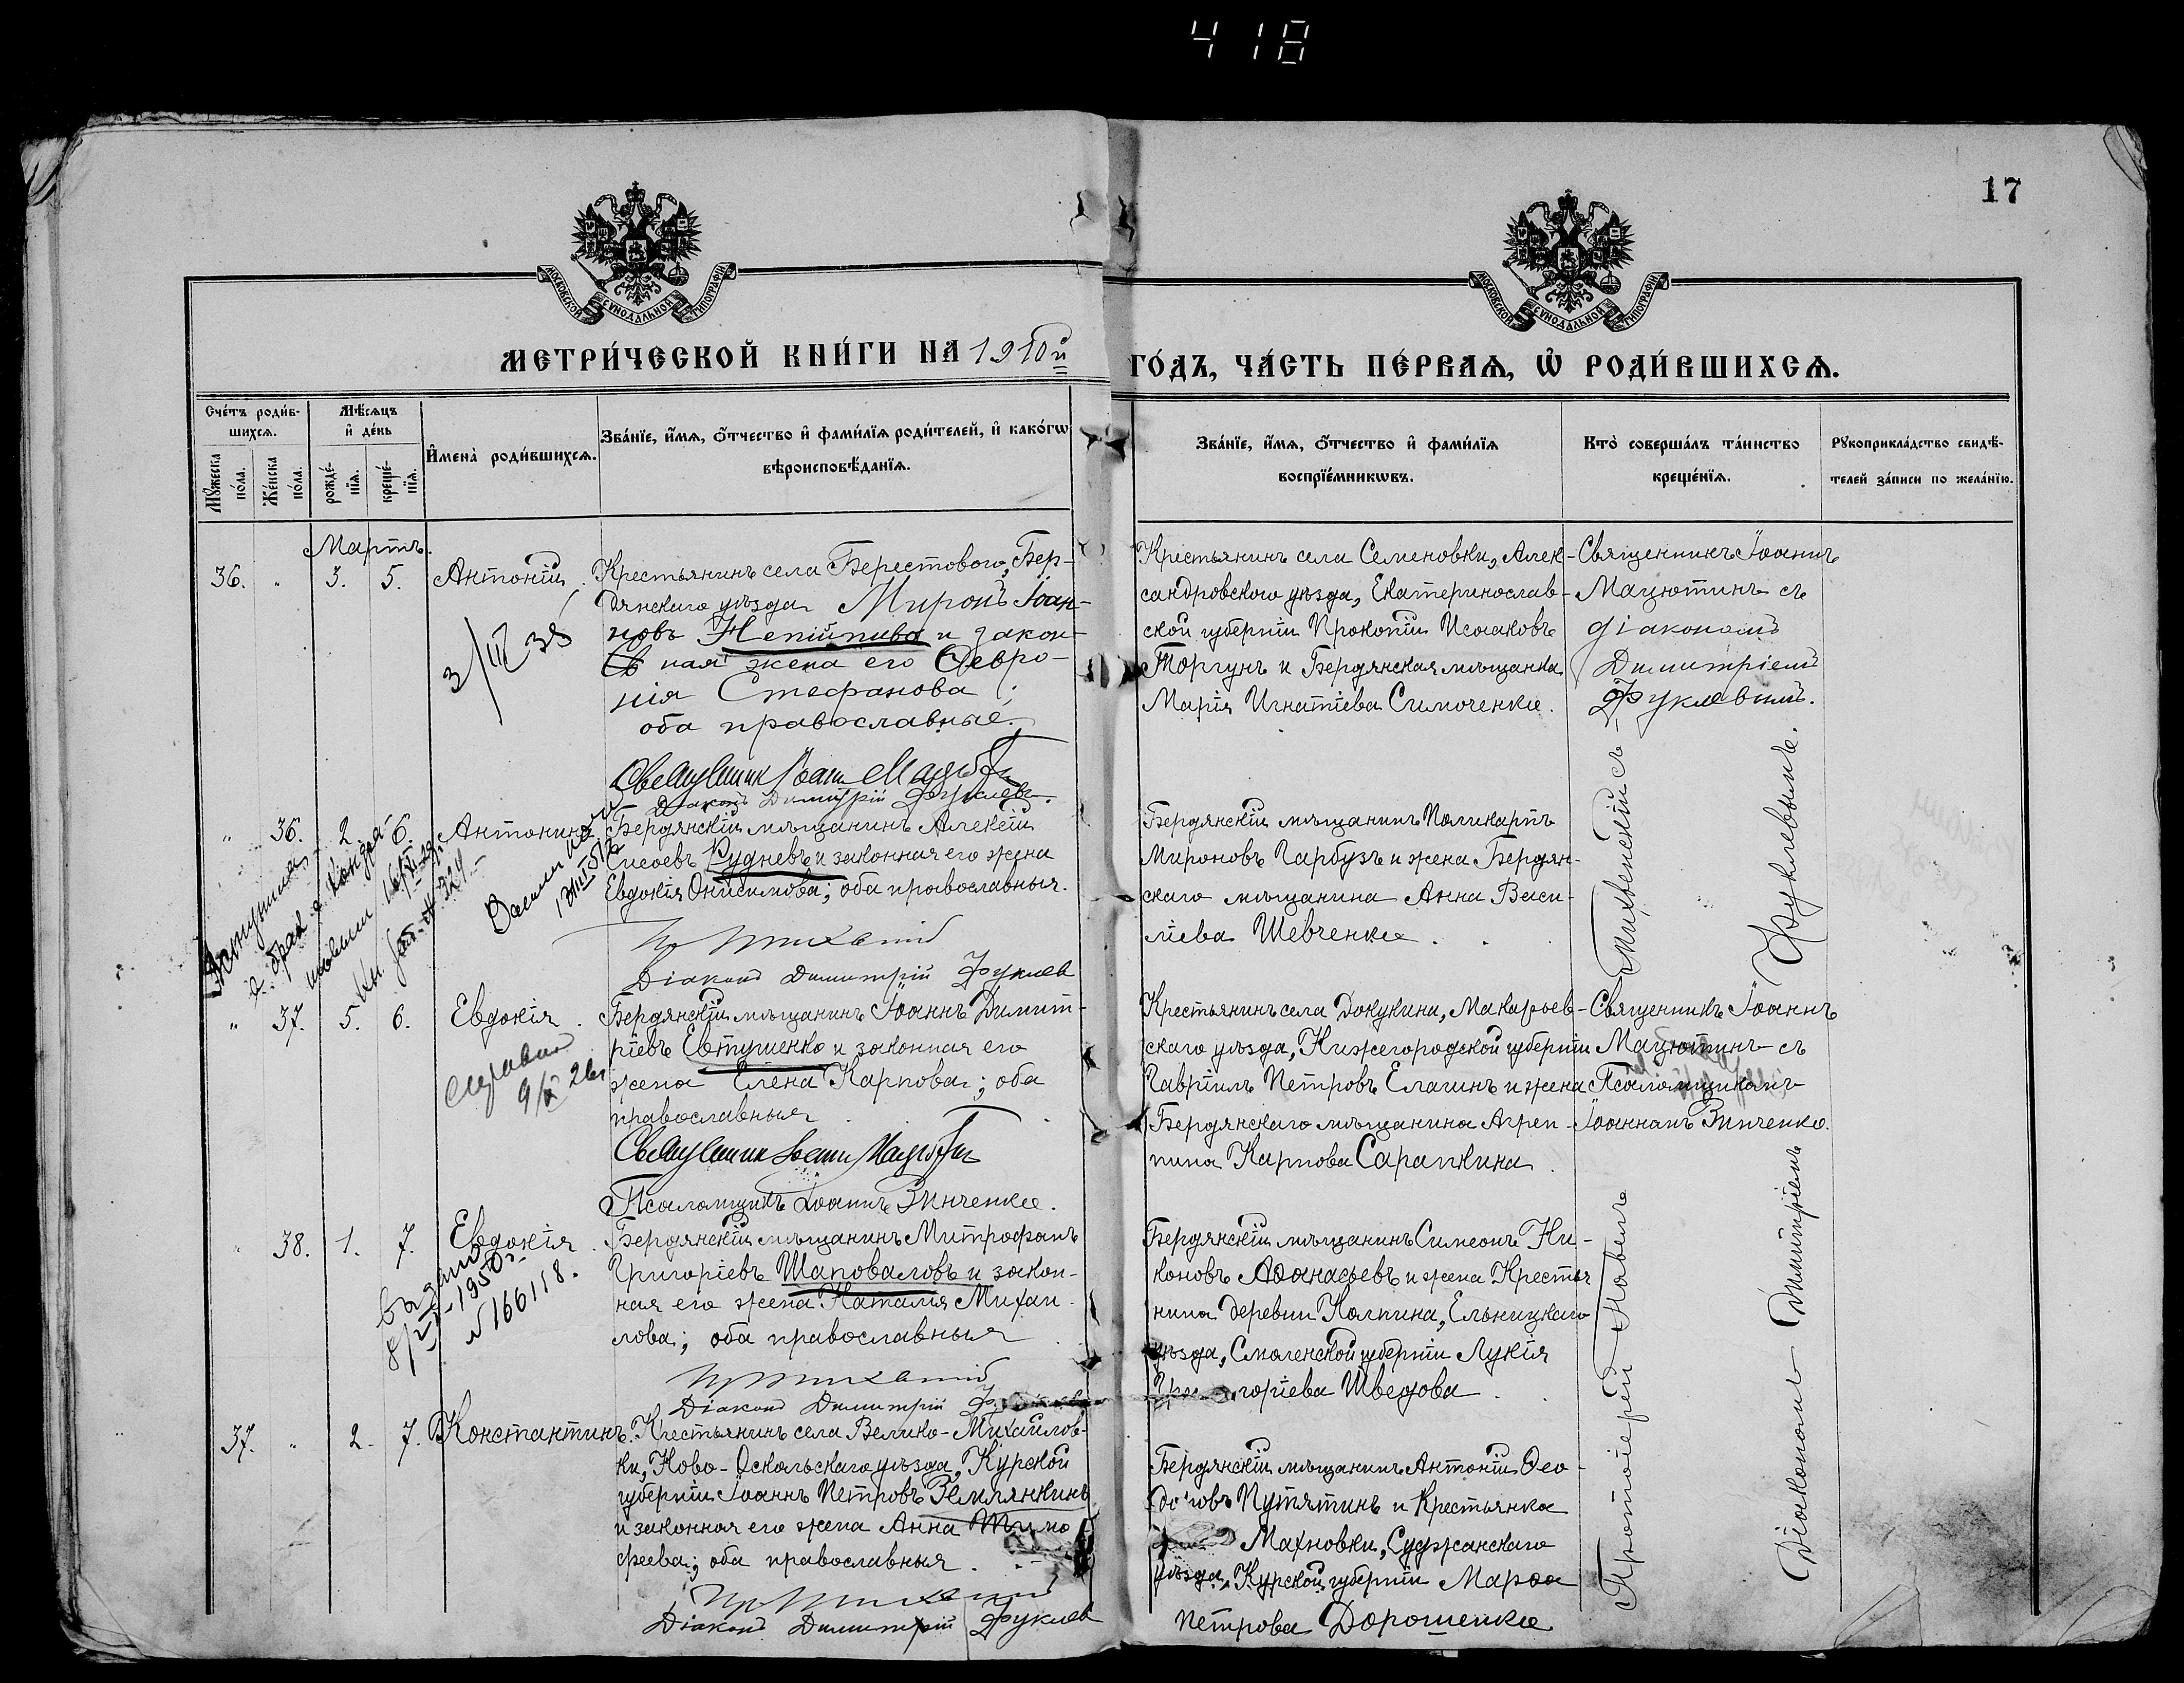 418
17
МОСКОВСКОЙ СѴНОДАЛЬНОЙ ТИПОГРАФІИ
МОСКОВСКОЙ СѴНОДАЛЬНОЙ ТИПОГРАФІИ
МЕТРИ́ЧЕСКОЙ КНИ́ГИ НА 1910й
ГО́ДЪ, ЧА́СТЬ ПЕ́РВАѦ, Ѡ҆ РОДИ́ВШИХСѦ.
Сче́тъ роди́в-
шихсѧ.
Мꙋ́жеска по́ла.
Же́нска по́ла.
Мѣ́сѧцъ
и҆ де́нь
рожде́-
нїѧ.
креще́-
нїѧ.
И҆мена̀ роди́вшихсѧ.
Зва́нїе, и҆́мѧ, ѻ҆́тчество и҆ фами́лїѧ роди́телей, и҆ како́гѡ
вѣроисповѣ́данїѧ.
Зва́нїе, и҆́мѧ, ѻ҆́тчество и҆ фами́лїѧ
воспрїе́мникѡвъ.
Кто̀ соверша́лъ та́инство
креще́нїѧ.
Рꙋкоприкла́дство свидѣ́-
телей за́писи по жела́нїю.
Мартъ.
36. " 3. 5. Антоній.
Крестьянинъ села Берестового, Бер-
дянскаго уѣзда Миронъ Іоан-
новъ Непійпива и закон-
ная жена его Ѳевро-
нія Стефанова;
оба православные.
Священникъ Іоаннъ Мацютинъ
Діаконъ Димитрій Фуклевъ.
Крестьянинъ села Семеновки, Алек-
сандровского уѣзда, Екатеринослав-
ской губерніи Прокопій Исааковъ
Торгунъ и Бердянская мѣщанка
Марія Игнатіева Симоченко.
Священникъ Іоаннъ
Мацютинъ съ
діакономъ
Димитріемъ
Фуклевымъ.
" 36. 2. 6. Антонина
Бердянскій мѣщанинъ Алексій
Сисоевъ Рудневъ и законная его жена
Евдокія Онисимова; оба православныя.
Діаконъ Димитрій Фуклев
Бердянскій мѣщанинъ Поликарпъ
Мироновъ Гарбузъ и жена Бердян-
скаго мѣщанина Анна Васи-
ліева Шевченко.
" 37. 5. 6. Евдокія.
справка
Бердянскій мѣщанинъ Іоаннъ Димит-
ріевъ Евтушенко и законная его
жена Елена Карпова; оба
православныя
Священникъ Іоаннъ Мацютинъ
Псаломщикъ Іоаннъ Зинченко.
Крестьянинъ села Докукина, Макарьев-
скаго уѣзда, Нижегородской губерніи
Гавріилъ Петровъ Елагинъ и жена
Бердянскаго мѣщанина Агреп-
пина Карпова Сарапкина.
Священникъ Іоаннъ
Мацютинъ съ
Псаломщикомъ
Іоанномъ Зинченко.
" 38. 1. 7. Евдокія.
1950г.
N 166118.
Бердянскій мѣщанинъ Митрофанъ
Григоріевъ Шаповаловъ и закон-
ная его жена Наталія Михаи-
лова; оба православныя
Діаконъ Димитрій
Бердянскій мѣщанинъ Симеонъ Ни-
коновъ Аѳанасьевъ и жена Крестья
нина деревни Колпина, Ельницкаго
уѣзда, Смоленской губерніи Лукія
горіева Шведова.
37. " 2. 7. Константинъ.
Крестьянинъ села Велико-Михайлов-
ки, Ново-Оскольскаго уѣзда, Курской
губерніи Іоаннъ Петровъ Землянкинъ
и законная его жена Анна Тимо
феева; оба православныя.
Діаконъ Димитрій Фуклев
Бердянскій мѣщанинъ Антоній Ѳео-
до'товъ Путятинъ и Крестьянка
Махновки, Суджанскаго
уѣзда, Курской губерніи Марѳа
Петрова Дорошенко
Протоіерей Павелъ Тихвенскій съ
Діакономъ Димитріемъ Фуклевымъ.